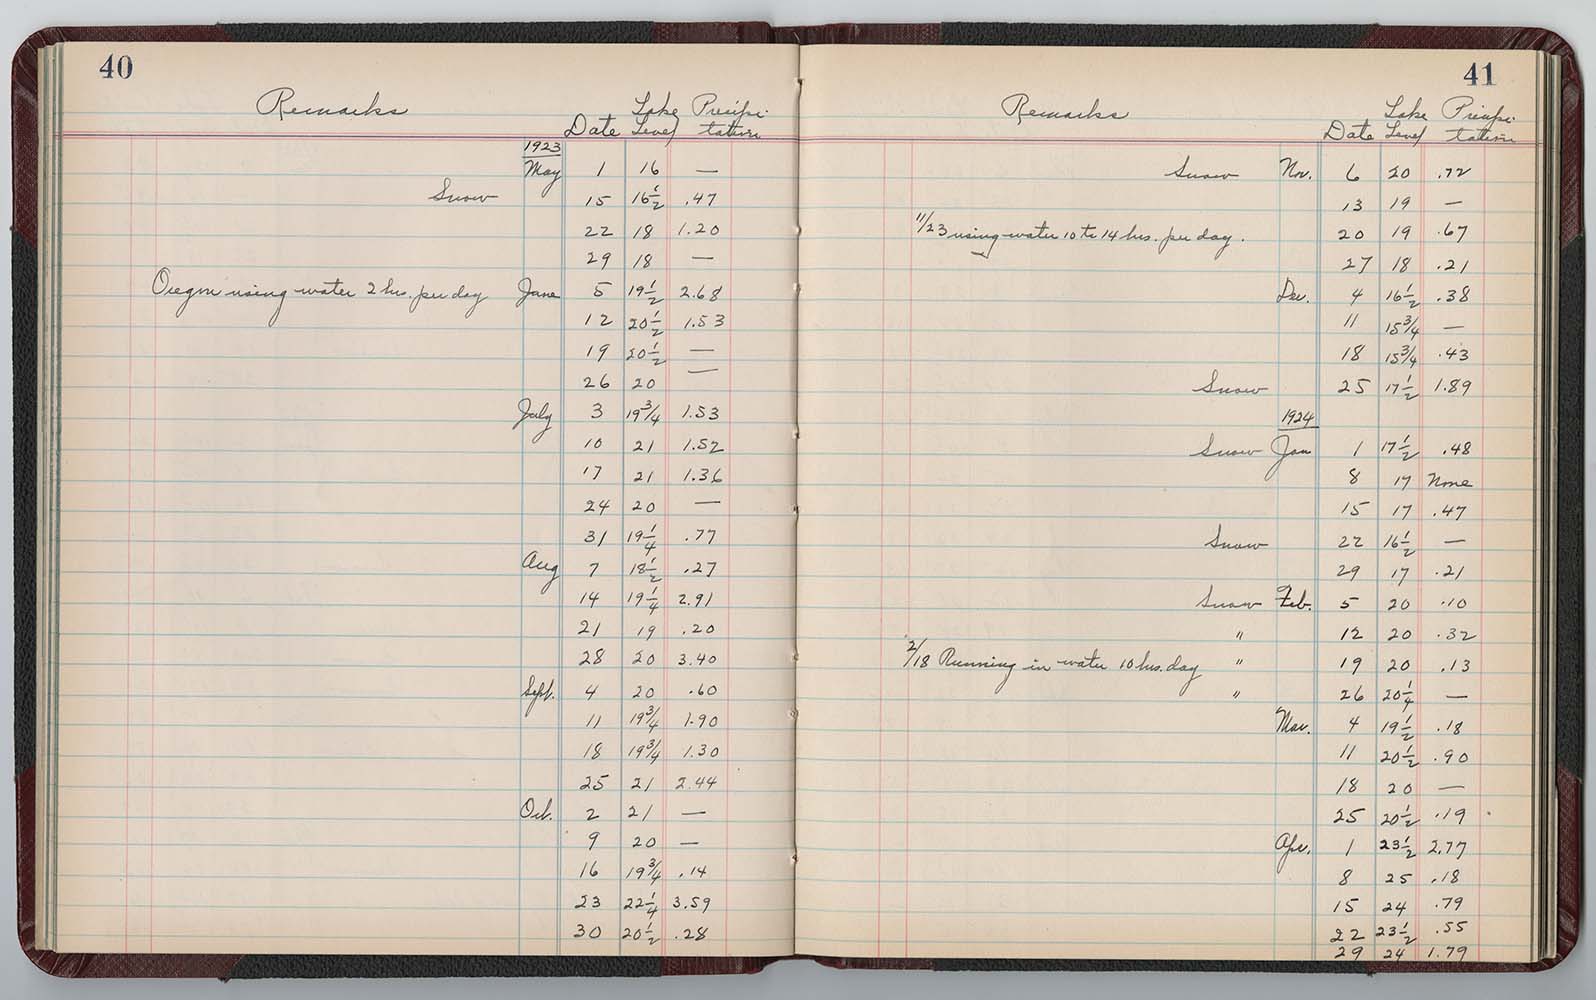 40
Remarks Date Lake Level Precipi-tation
1923
May 1 16 —
Snow 15 16 1/2 .47
22 18 1.20
29 18 —
Oregon using water 2 hrs. per day June 5 19 1/2 2.68
12 20 1/2 1.53
19 20 1/2 —
26 20 —
July 3 19 3/4 1.53
10 21 1.52
17 21 1.36
24 20 —
31 19 1/4 .77
Aug 7 18 1/2 .27
14 19 1/4 2.91
21 19 .20
28 20 3.40
Sept. 4 20 .60
11 19 3/4 1.90
18 19 3/4 1.30
25 21 2.44
Oct. 2 21 —
9 20 —
16 19 3/4 .14
23 22 1/4 3.59
30 20 1/2 .28
41
Remarks Date Lake Level Precipi-tation
Snow Nov. 6 20 .72
13 19 —
11/23 using water 10 to 14 hrs. per day. 20 19 .67
27 18 .21
Dec. 4 16 1/2 .38
11 15 3/4 —
18 15 3/4 .43
Snow 25 17 1/2 1.89
1924
Snow Jan 1 17 1/2 .48
8 17 None
15 17 .47
Snow 22 16 1/2 —
29 17 .21
Snow Feb. 5 20 .10
" 12 20 .32
2/18 Running in water 10 hrs. day " 19 20 .13
" 26 20 1/4 —
Mar. 4 19 1/2 .18
11 20 1/2 .90
18 20 —
25 20 1/2 .19
Apr. 1 23 1/2 2.77
8 25 .18
15 24 .79
22 23 1/2 .55
29 24 1.79